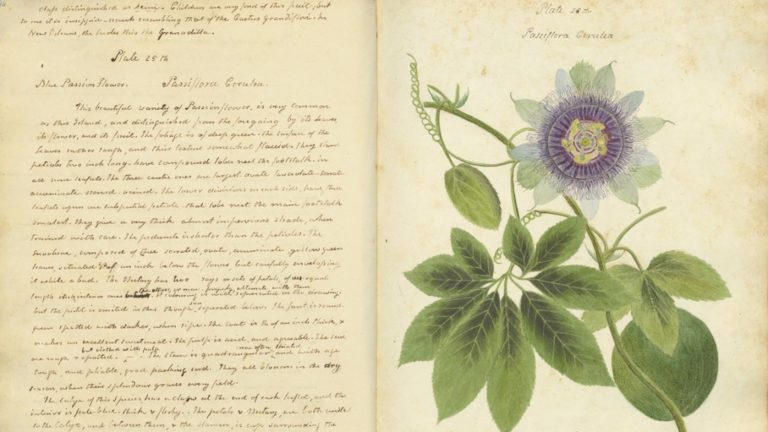 class distinguished as being. Children are very fond of this fruit, but
to me it is insipid - much resembling that of the Cactus Grandiflora. In
New Orleans, the ladies this the Granadilla.
Plate 25th
Blue Passion Flower. Passiflora Cerulea.
This beautiful variety of Passionflower, is very common
in this Island, and distinguished from the foregoing by its leaves,
its flower, and its fruit. The foliage is of deep green - the surface of the
leaves rather rough, and this texture somewhat flaccid. They have
petioles two inch long - have compound lobes near the footstalk - in
all nine leaflets. The three centre ones are largest - ovate lanceolate - serrate
accuminate - veined. The lower divisions on each side, have three
leaflets upon one subpetiol petiole - that lobe next the main footstalk
smallest. They give a very thick almost impervious shade, when
trained with care. The peduncle is shorter than the petioles. The
Involucre, composed of three serrated, ovate, accuminate yellow green
leaves, situated half an inch below the flower but carefully enveloping
it while a bud. The Nectary has two rays or sets of petals, of unequal
length
but the pistil is omitted in this though separated below. The fruit is round -
green spotted with darker, when ripe. The coat is ¾ of an inch thick, &
makes an excellent sweetmeat. The pulp is acid, and agreable. The seed
but clothed with pulp
are rough & spotted. The stem is quadrangular and with age
rough and pliable, good packing cord. They all blossom in the dry
season, when their splendour graces every field.
The calyx of this species has a clasp at the end of each leaflet, and the
interior is pale blue - thick & fleshy. The petals & Nectary, are both united
to the Calyx, and between them, & the stamen, is a cup surrounding the
Plate 25th
Passiflora Cerulea